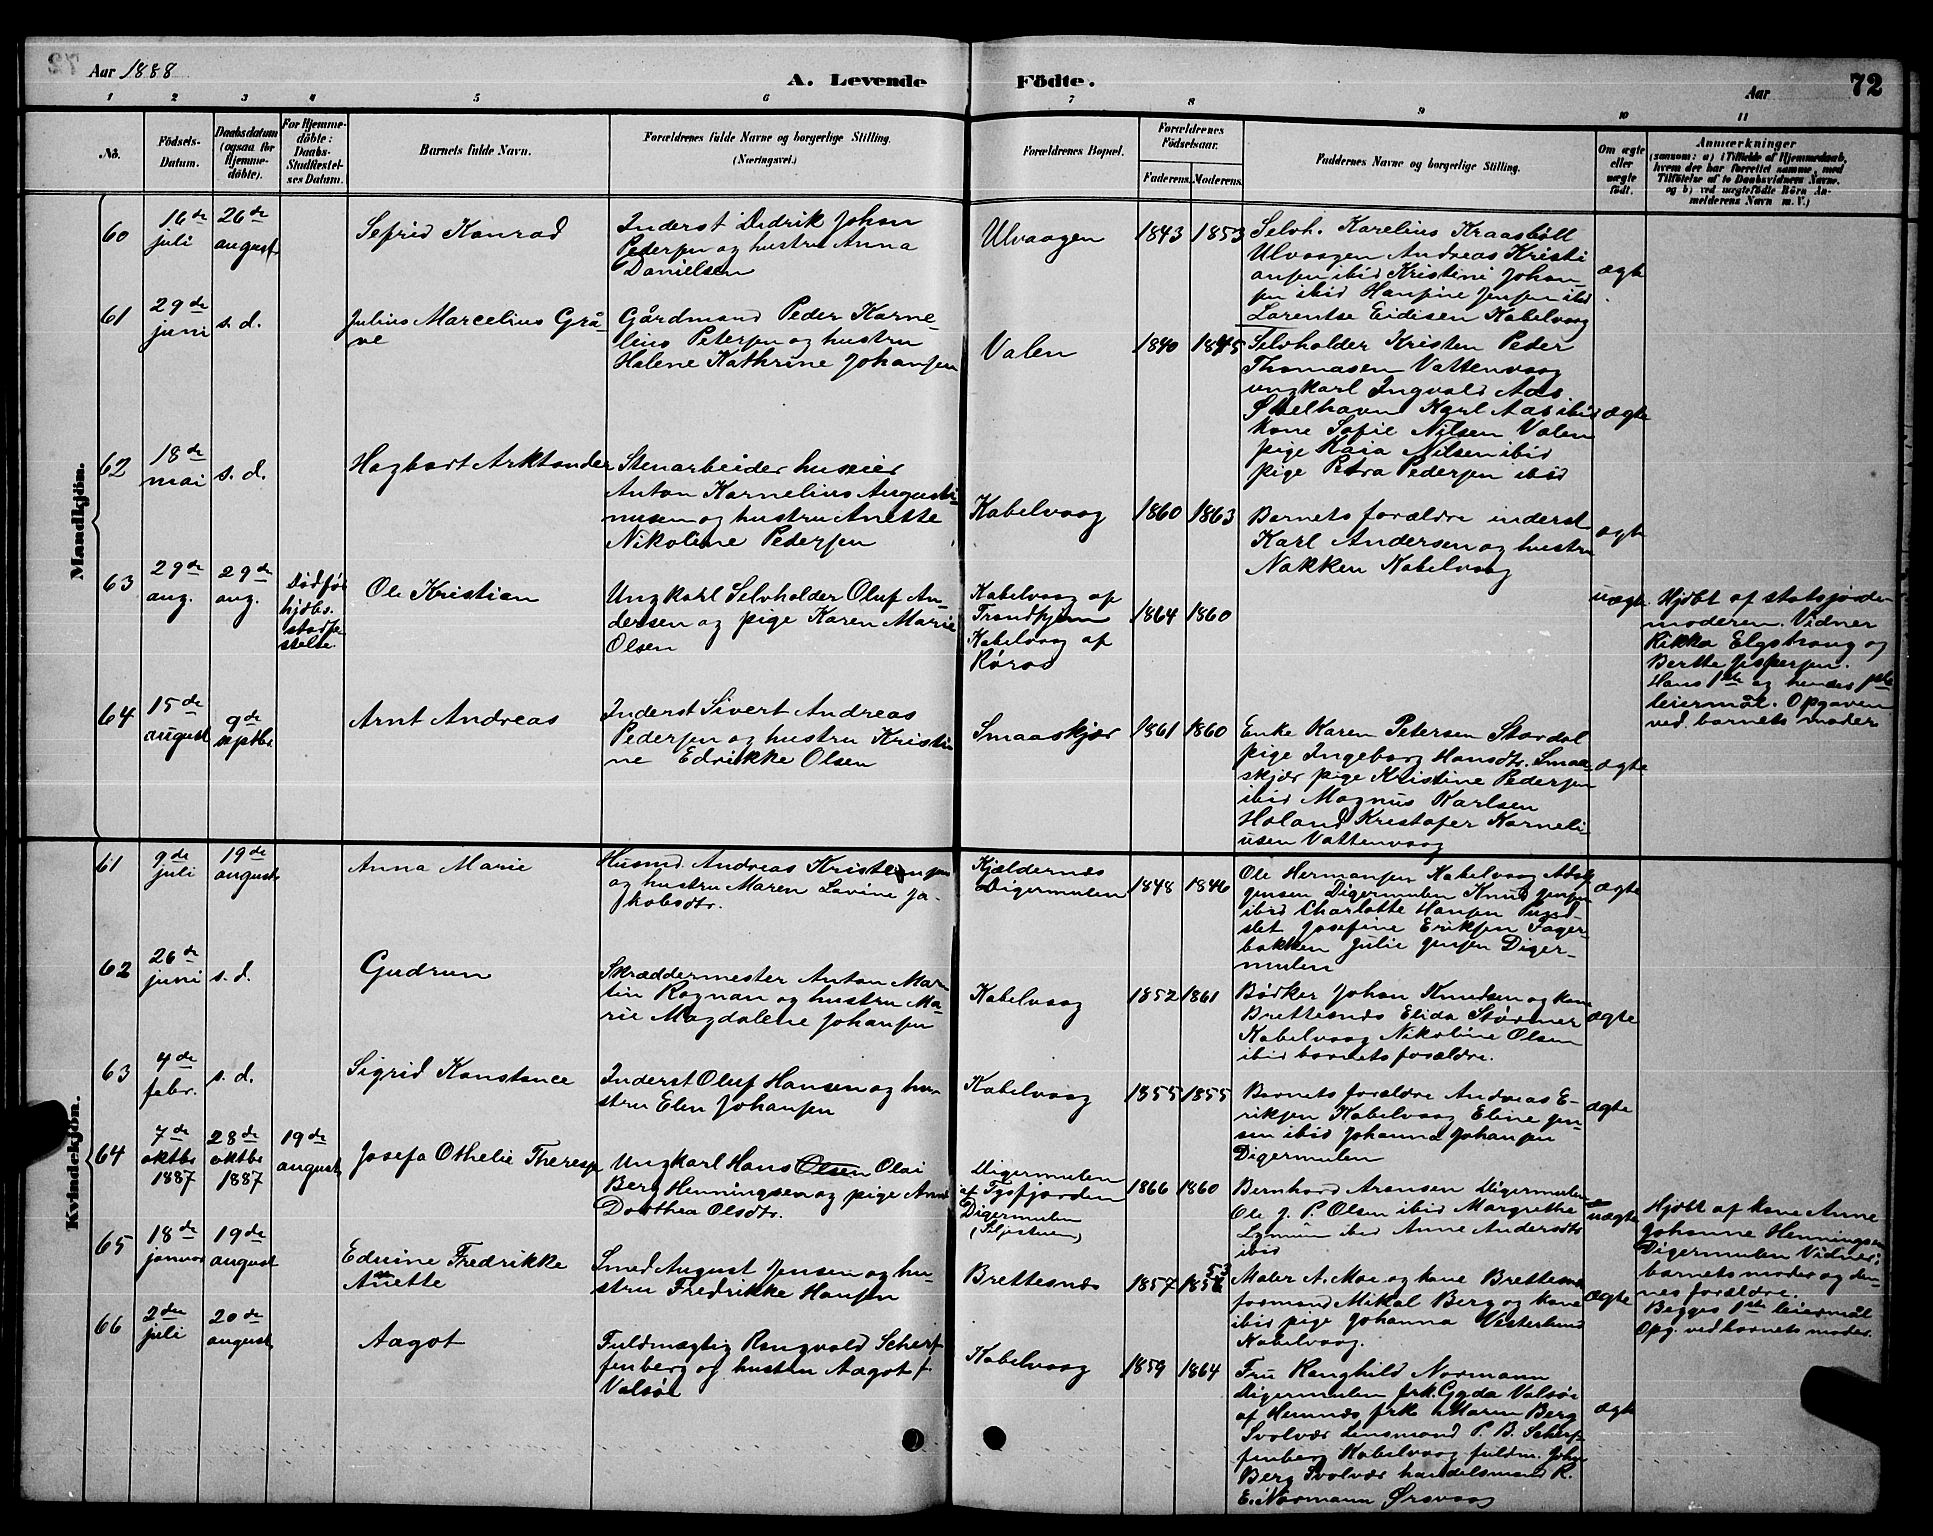 72
Aar 1888
A. Levende Födte.
Aar 72
1 2 3 4 5 6 7 8 9 10 11
No.
Födsels-Datum.
Daabsdatum (ogsaa for Hjemme-döbte).
For Hjemme-döbte: Daabs-Stadfæstel-ses Datum.
Barnets fulde Navn.
Forældrenes fulde Navne og borgerlige Stilling. (Næringsvei.)
Forældrenes Bopæl.
Forældrenes Födselsaar.
Faderens. Moderens.
Faddernes Navne og borgerlige Stilling.
Om ægte eller uægte født.
Anmærkninger
(saasom: a) i Tilfælde af Hjemmedaab,
hvem der har forrettet samme, med
Tilføielse af to Daabsvidners Navne,
og b) ved uægtefödte Börn An-
melderens Navn m. V.)
Mandkjön.
60
16de juli
26de august
Sefrid Konrad
Inderst Didrik Johan
Pedersen og hustru Anna
Danielsen
Ulvaagen
1843 1853
Selvh. Karelius Kraasböll
Ulvaagen Andreas Kristi
ansen ibid Kristine Johan-
sen ibid Hansine Jensen ibid
Lorentse Eidisen Kabelvaag
ægte
61
29de juni
s. d.
Julius Marcelius Grå-
ve
Gårdmand Peder Korne-
lius Petersen og hustru
Helene Kathrine Johansen
Valen
1840 1845
Selvholder Kristen Peder
Thomasen Vattenvaag
ungkarl Ingvald Aas
Ørelhavn Karl Aas ibid
kone Sofie Nilsen Valen
pige Kaia Nilsen ibid
pige Petra Pedersen ibid
ægte
62
18de mai
s. d.
Hagbart Arktander
Stenarbeider huseier
Anton Kornelius Augusti-
nusen og hustru Anette
Nikoline Pedersen
Kabelvaag
1860 1863
Barnets forældre inderst
Karl Andersen og hustru
Nakken Kabelvaag
ægte
63
29de aug.
29de aug.
Dødfød
hjdbs.
stadfæ
stelse.
Ole Kristian
Ungkarl Selvholder Oluf An-
dersen og pige Karen Marie
Olsen
Kabelvaag af
Trondhjem
Kabelvaag af
Røros
1864 1860
uægte
Hjdbt af statsjorde-
moderen. Vidner
Rikka Elgstrang og
Berthe Jespersen.
Hans 1ste og hendes 1ste
leiermål. Opgaven
ved barnets moder
64
15de august
9de septbr
Arnt Andreas
Inderst Sivert Andreas
Pedersen og hustru Kristi
ne Edrikke Olsen
Smaaskjær
1861 1860
Enke Karen Petersen Stordal
pige Ingeborg Hansdtr. Smaa-
skjær pige Kristine Pedersen
ibid Magnus Karlsen
Holand Kristofer Korneli
usen Vattenvaag
ægte
Kvindekjön.
61
9de juli
19de august
Anna Marie
Husmd. Andreas Kristensen
og hustru Maren Lavine Ja-
kobsdtr.
Kjældernes
Digermulen
1848 1846
Ole Hermansen Kabelvaag Adolf
Jensen Digermulen Knud Jensen
ibid Charlotte Hansen Pund-
slet Josefine Eriksen Fager-
bakken Julie Jensen Diger-
mulen
ægte
62
26de juni
s. d.
Gudrun
Skræddermester Anton Mar
tin Rognan og hustru Ma-
rie Magdalene Johansen
Kabelvaag
1852 1861
Bødker Johan Knudsen og kone
Brettesnæs Elida Størmer
Kabelvaag Nikoline Olsen
ibid barnets forældre.
ægte
63
4de febr.
s. d.
Sigrid Konstance
Inderst Oluf Hansen og hu-
stru Elen Johansen
Kabelvaag
1855 1855
Barnets forældre Andreas E-
riksen Kabelvaag Eline Jen-
sen ibid Johanna Johansen
Digermulen
ægte
64
7de oktbr 1887
28de oktbr 1887
19de august
Josefa Othelie Therese
Ungkarl Hans Olsen Olai
Berg Henningsen og pige Anne
Dorthea Olsdtr.
Digermulen
af Tysfjorden
Digermulen
1866 1860
Bernhard Aronsen Digermulen
Ole J. P. Olsen ibid Margrethe
Lyman ibid Anne Andersdtr
ibid
uægte
Hjdbt af kone Anne
Johanne Henningsen
Digermulen Vidner:
barnets moder og den-
nes forældre.
Begges 1ste leiermål
Opg. ved barnets moder.
65
18de januar
19de august
Edvine Fredrikke
Anette
Smed August Jensen og hu-
stru Fredrikke Hansen
Brettesnæs
1857 1856 53
Maler A. Moe og kone Brettesnæs
formand Mikal Berg og kone
ibid pige Johanna Vesterlund
Kabelvaag.
ægte
66
2den juli
20de august
Aagot
Fuldmægtig Rangvald Scherf
fenberg og hustru Aagot f.
Valsöe
Kabelvaag
1859 1864
Fru Ranghild Normann
Digermulen frk. Gyda Valsöe
af Hemnæs frk Maren Berg
Svolvær Lensmand P. B. Scherf-
fenberg Kabelvaag fuldm. John
Berg Svolvær handelsmand R.
E. Normann Ørsvaag
ægte